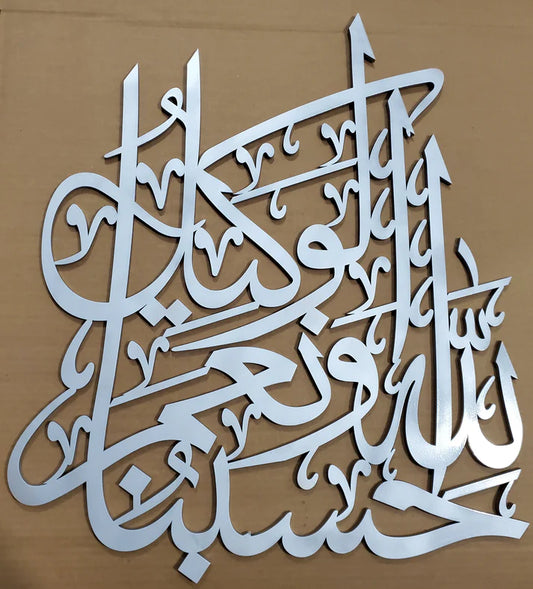 حسبنا
الله ونعم
الوكيل